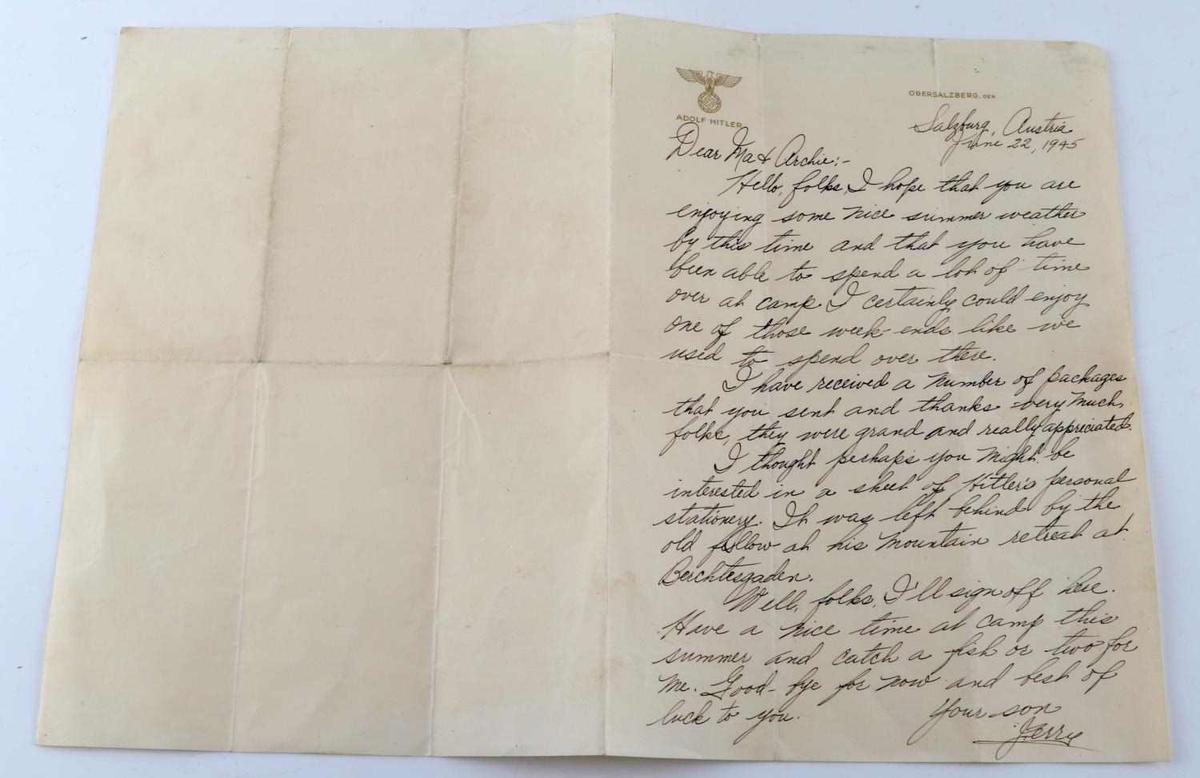 ADOLF HITLER
OBERSALZBERG, DEN
Salzburg, Austria
June 22, 1945
Dear Ma & Archie:-
Hello, folks, I hope that you are
enjoying some nice summer weather
by this time and that you have
been able to spend a lot of time
over at camp. I certainly could enjoy
one of those week-ends like we
used to spend over there.
I have received a number of packages
that you sent and thanks very much,
folks, they were grand and really appreciated.
I thought perhaps you might be
interested in a sheet of Hitler's personal
stationery. It was left behind by the
old fellow at his mountain retreat at
Berchtesgaden.
Well, folks, I'll sign off here.
Have a nice time at camp this
summer and catch a fish or two for
me. Good-bye for now and best of
luck to you.
Your son
Jerry